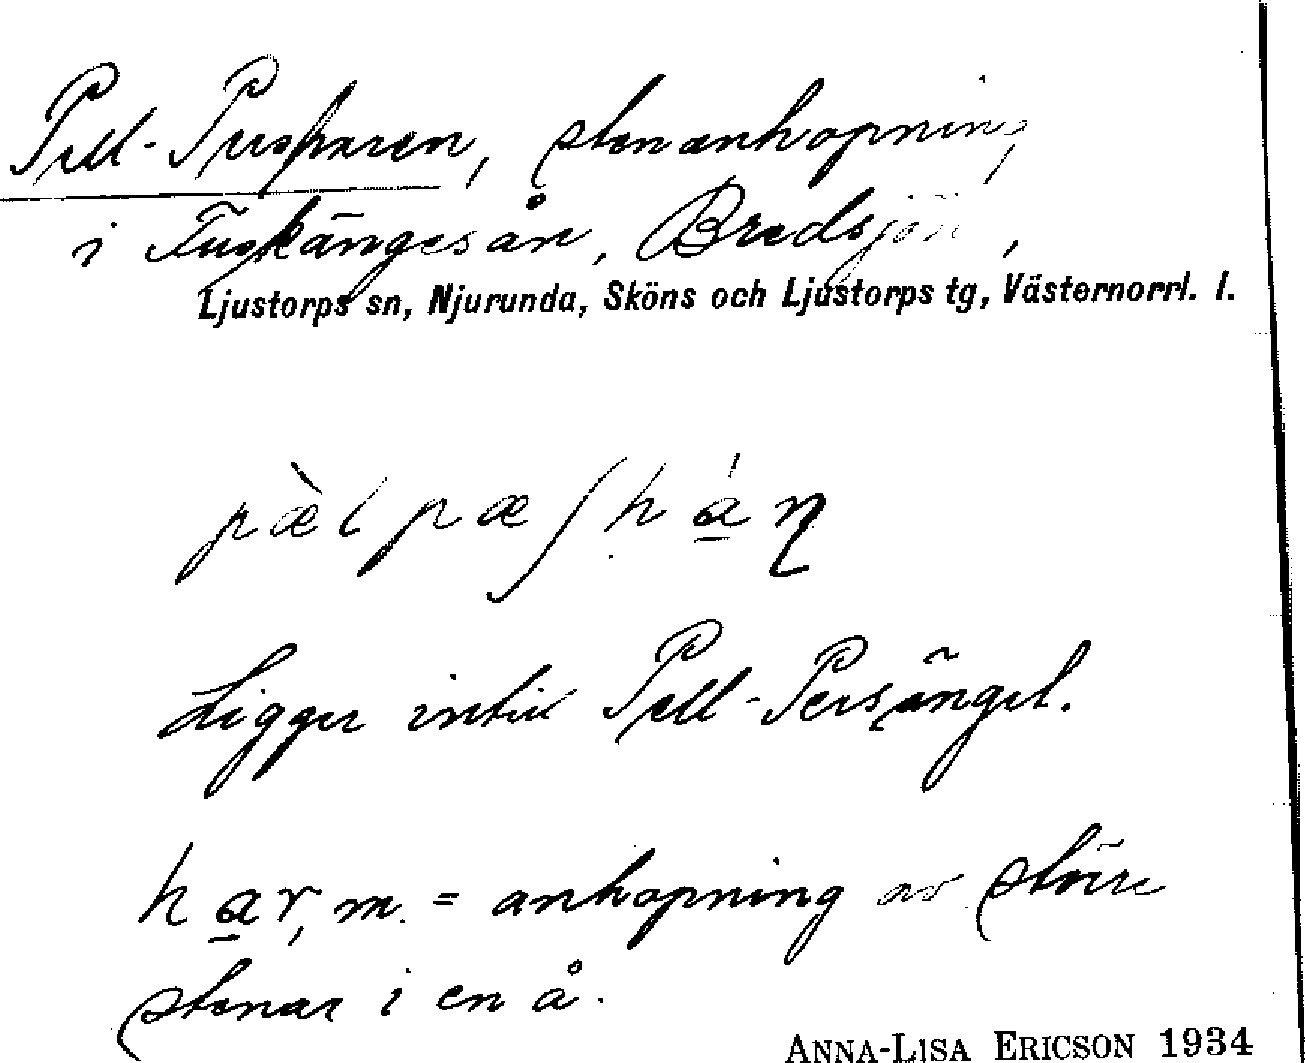 Pell-Persharen, stenanhopning
i Fuskängesån, Bredsjön,
Ljustorps sn, Njurunda, Sköns och Ljustorps tg, Västernorrl. l.
pæ̀l pæʃhán
Ligger intill Pell-Persänget.
har, m. = anhopning av större
stenar i en å.
ANNA-LISA ERICSON 1934